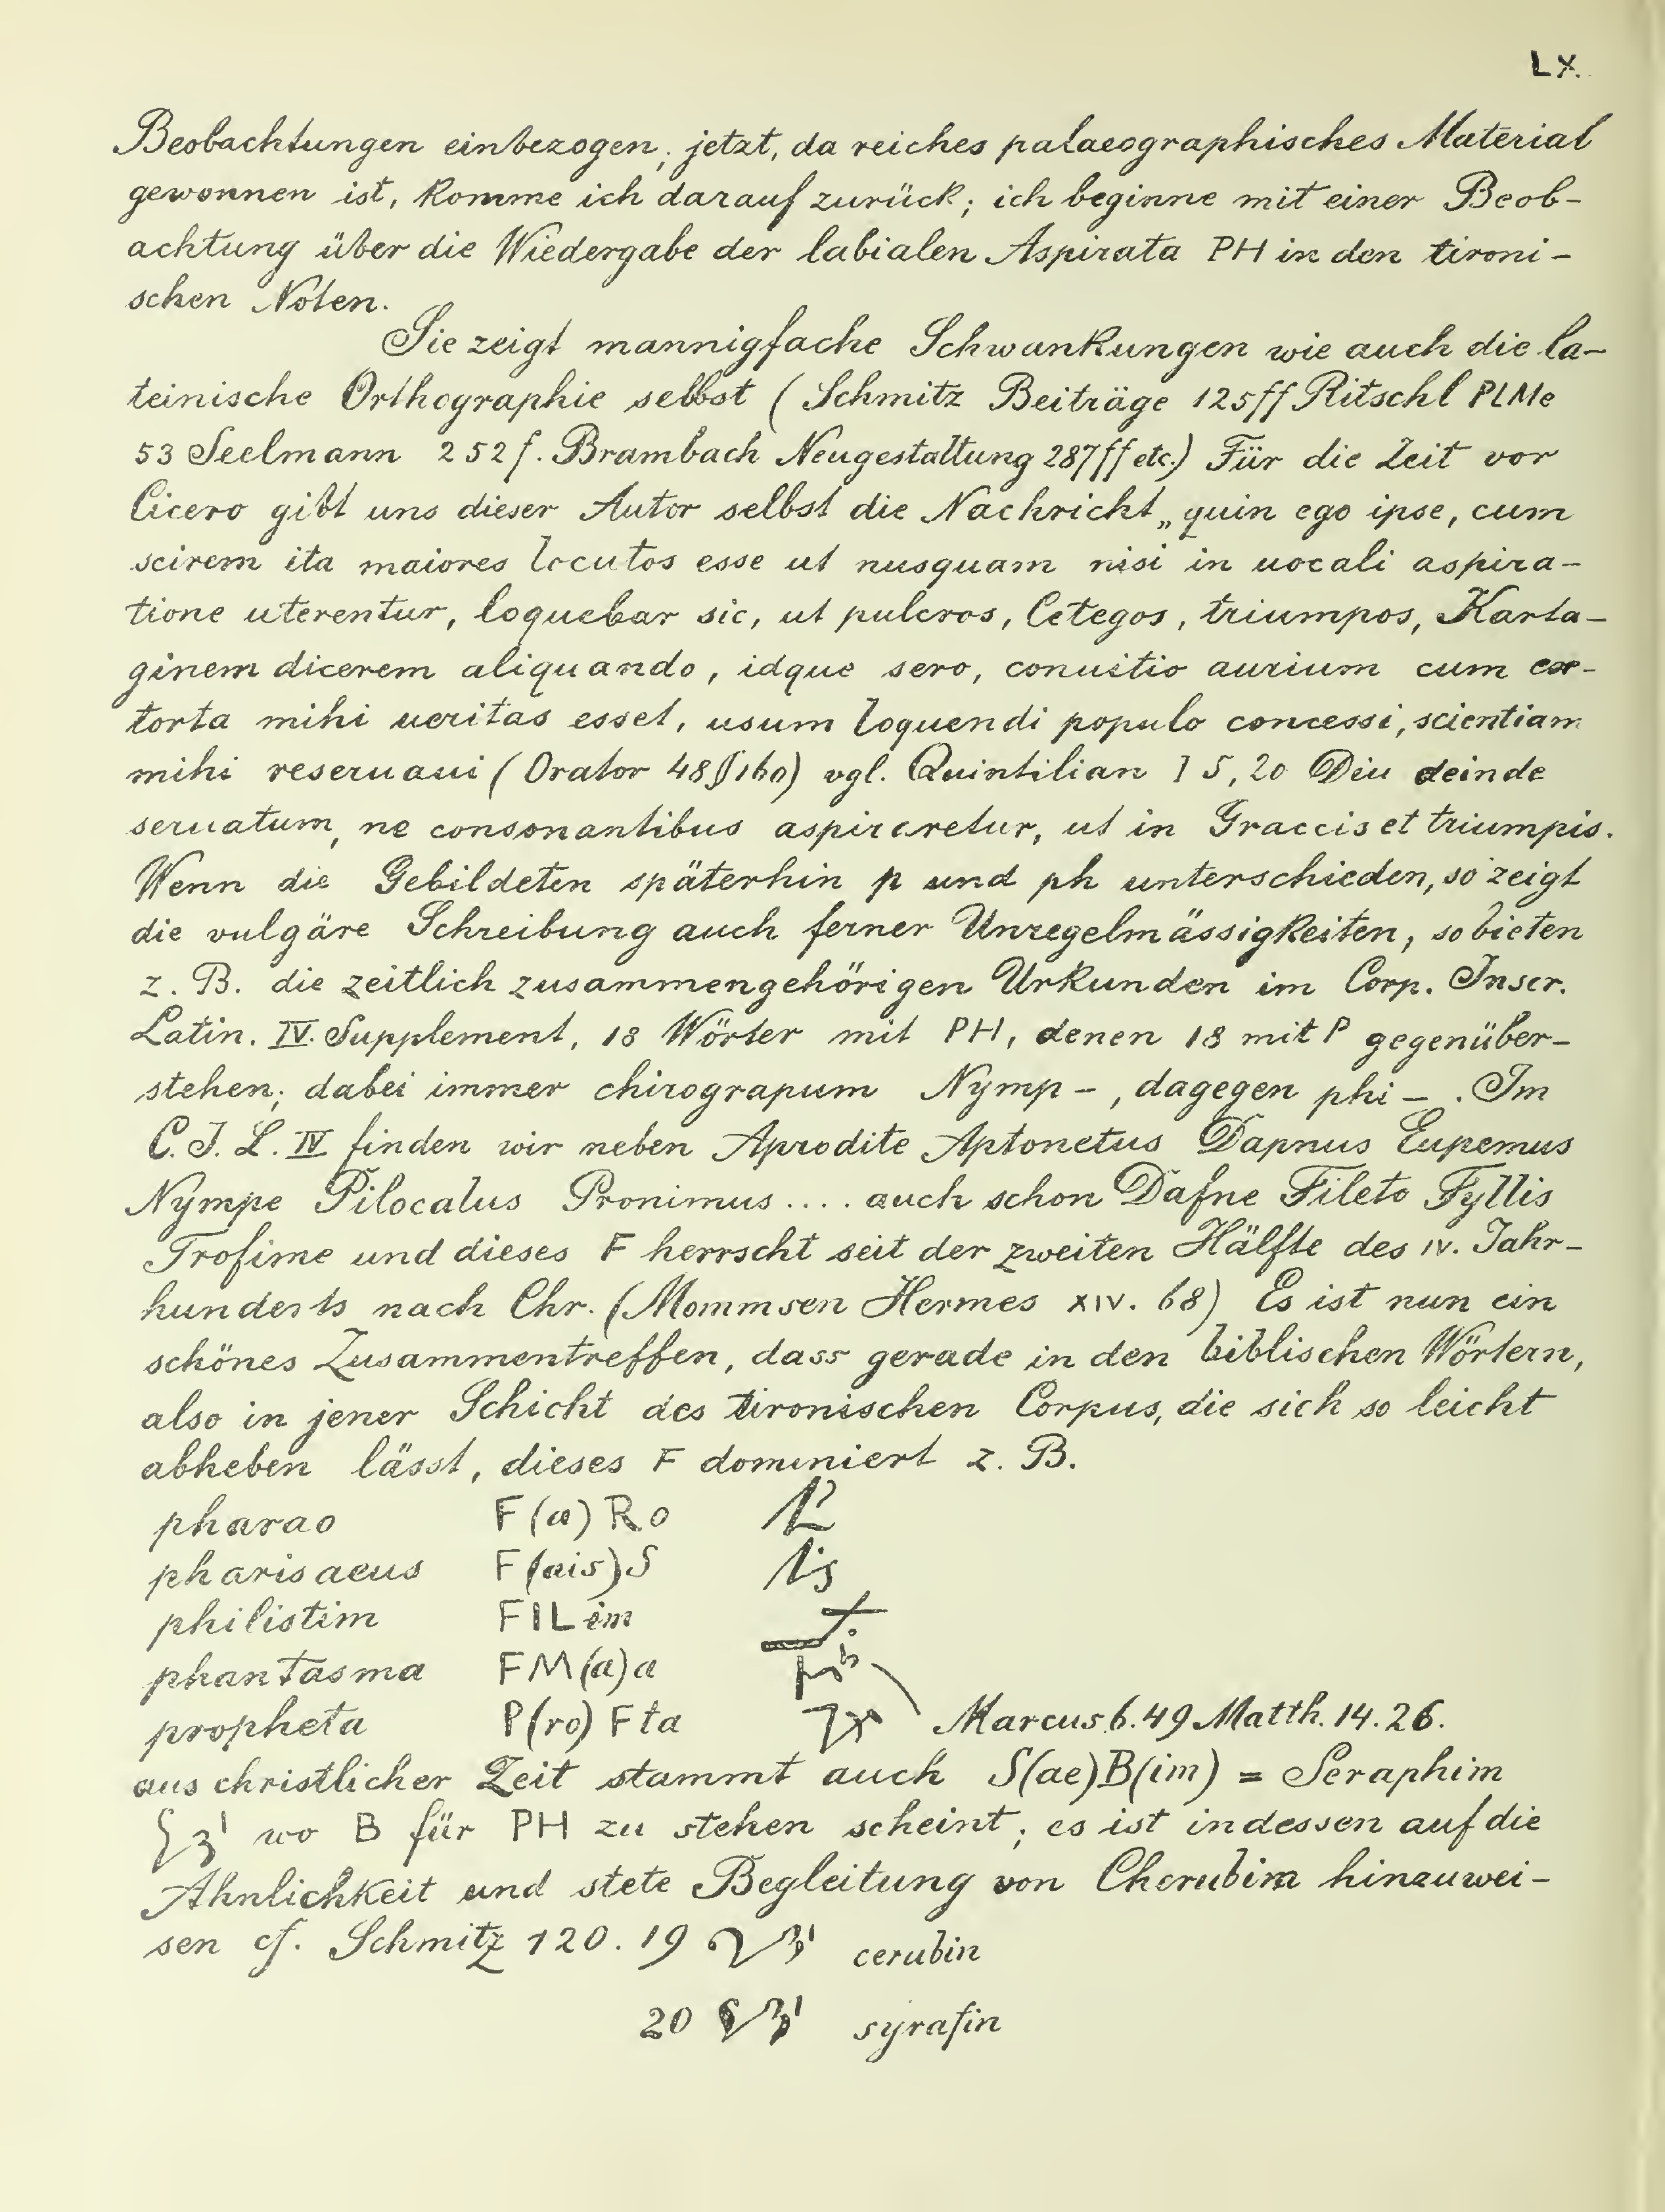 LX.
Beobachtungen einbezogen, jetzt, da reiches palaeographisches Material
gewonnen ist, komme ich darauf zurück; ich beginne mit einer Beob-
achtung über die Wiedergabe der labialen Aspirata PH in den tironi-
schen Noten.
Sie zeigt mannigfache Schwankungen wie auch die la-
teinische Orthographie selbst (Schmitz Beiträge 125ff Ritschl PLMe
53 Seelmann 252f. Brambach Neugestaltung 287ff etc.) Für die Zeit vor
Cicero gibt uns dieser Autor selbst die Nachricht „quin ego ipse, cum
scirem ita maiores locutos esse ut nusquam nisi in uocali aspira-
tione uterentur, loquebar sic, ut pulcros, Cetegos, triumpos, Karta-
ginem dicerem aliquando, idque sero, conuitio aurium cum ex-
torta mihi ueritas esset, usum loquendi populo concessi, scientiam
mihi reseruaui (Orator 48 § 160) vgl. Quintilian I 5, 20 Diu deinde
seruatum, ne consonantibus aspiraretur, ut in Graccis et triumpis.
Wenn die Gebildeten späterhin p und ph unterschieden, so zeigt
die vulgäre Schreibung auch ferner Unregelmässigkeiten, so bieten
z. B. die zeitlich zusammengehörigen Urkunden im Corp. Inscr.
Latin. IV. Supplement, 18 Wörter mit PH, denen 18 mit P gegenüber-
stehen; dabei immer chirograpum Nymp-, dagegen phi-. Im
C. I. L. IV finden wir neben Aprodite Aptonetus Dapnus Eupemus
Nympe Pilocalus Pronimus.... auch schon Dafne Fileto Fyllis
Trofime und dieses F herrscht seit der zweiten Hälfte des IV. Jahr-
hunderts nach Chr. (Mommsen Hermes XIV. 68) Es ist nun ein
schönes Zusammentreffen, dass gerade in den biblischen Wörtern,
also in jener Schicht des tironischen Corpus, die sich so leicht
abheben lässt, dieses F dominiert z. B.
pharao F(a)Ro
pharisaeus F(ais)S
philistim FILim
phantasma FM(a)a
propheta P(ro)Fta Marcus 6.49 Matth. 14.26.
aus christlicher Zeit stammt auch S(ae)B(im) = Seraphim
wo B für PH zu stehen scheint; es ist indessen auf die
Ahnlichkeit und stete Begleitung von Cherubim hinzuwei-
sen cf. Schmitz 120. 19 cerubin
20 syrafin